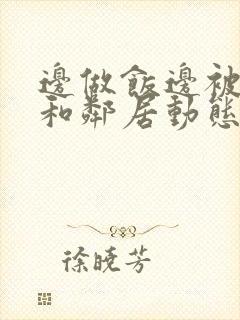 邊做飯邊被
和鄰居動態
徐曉芳